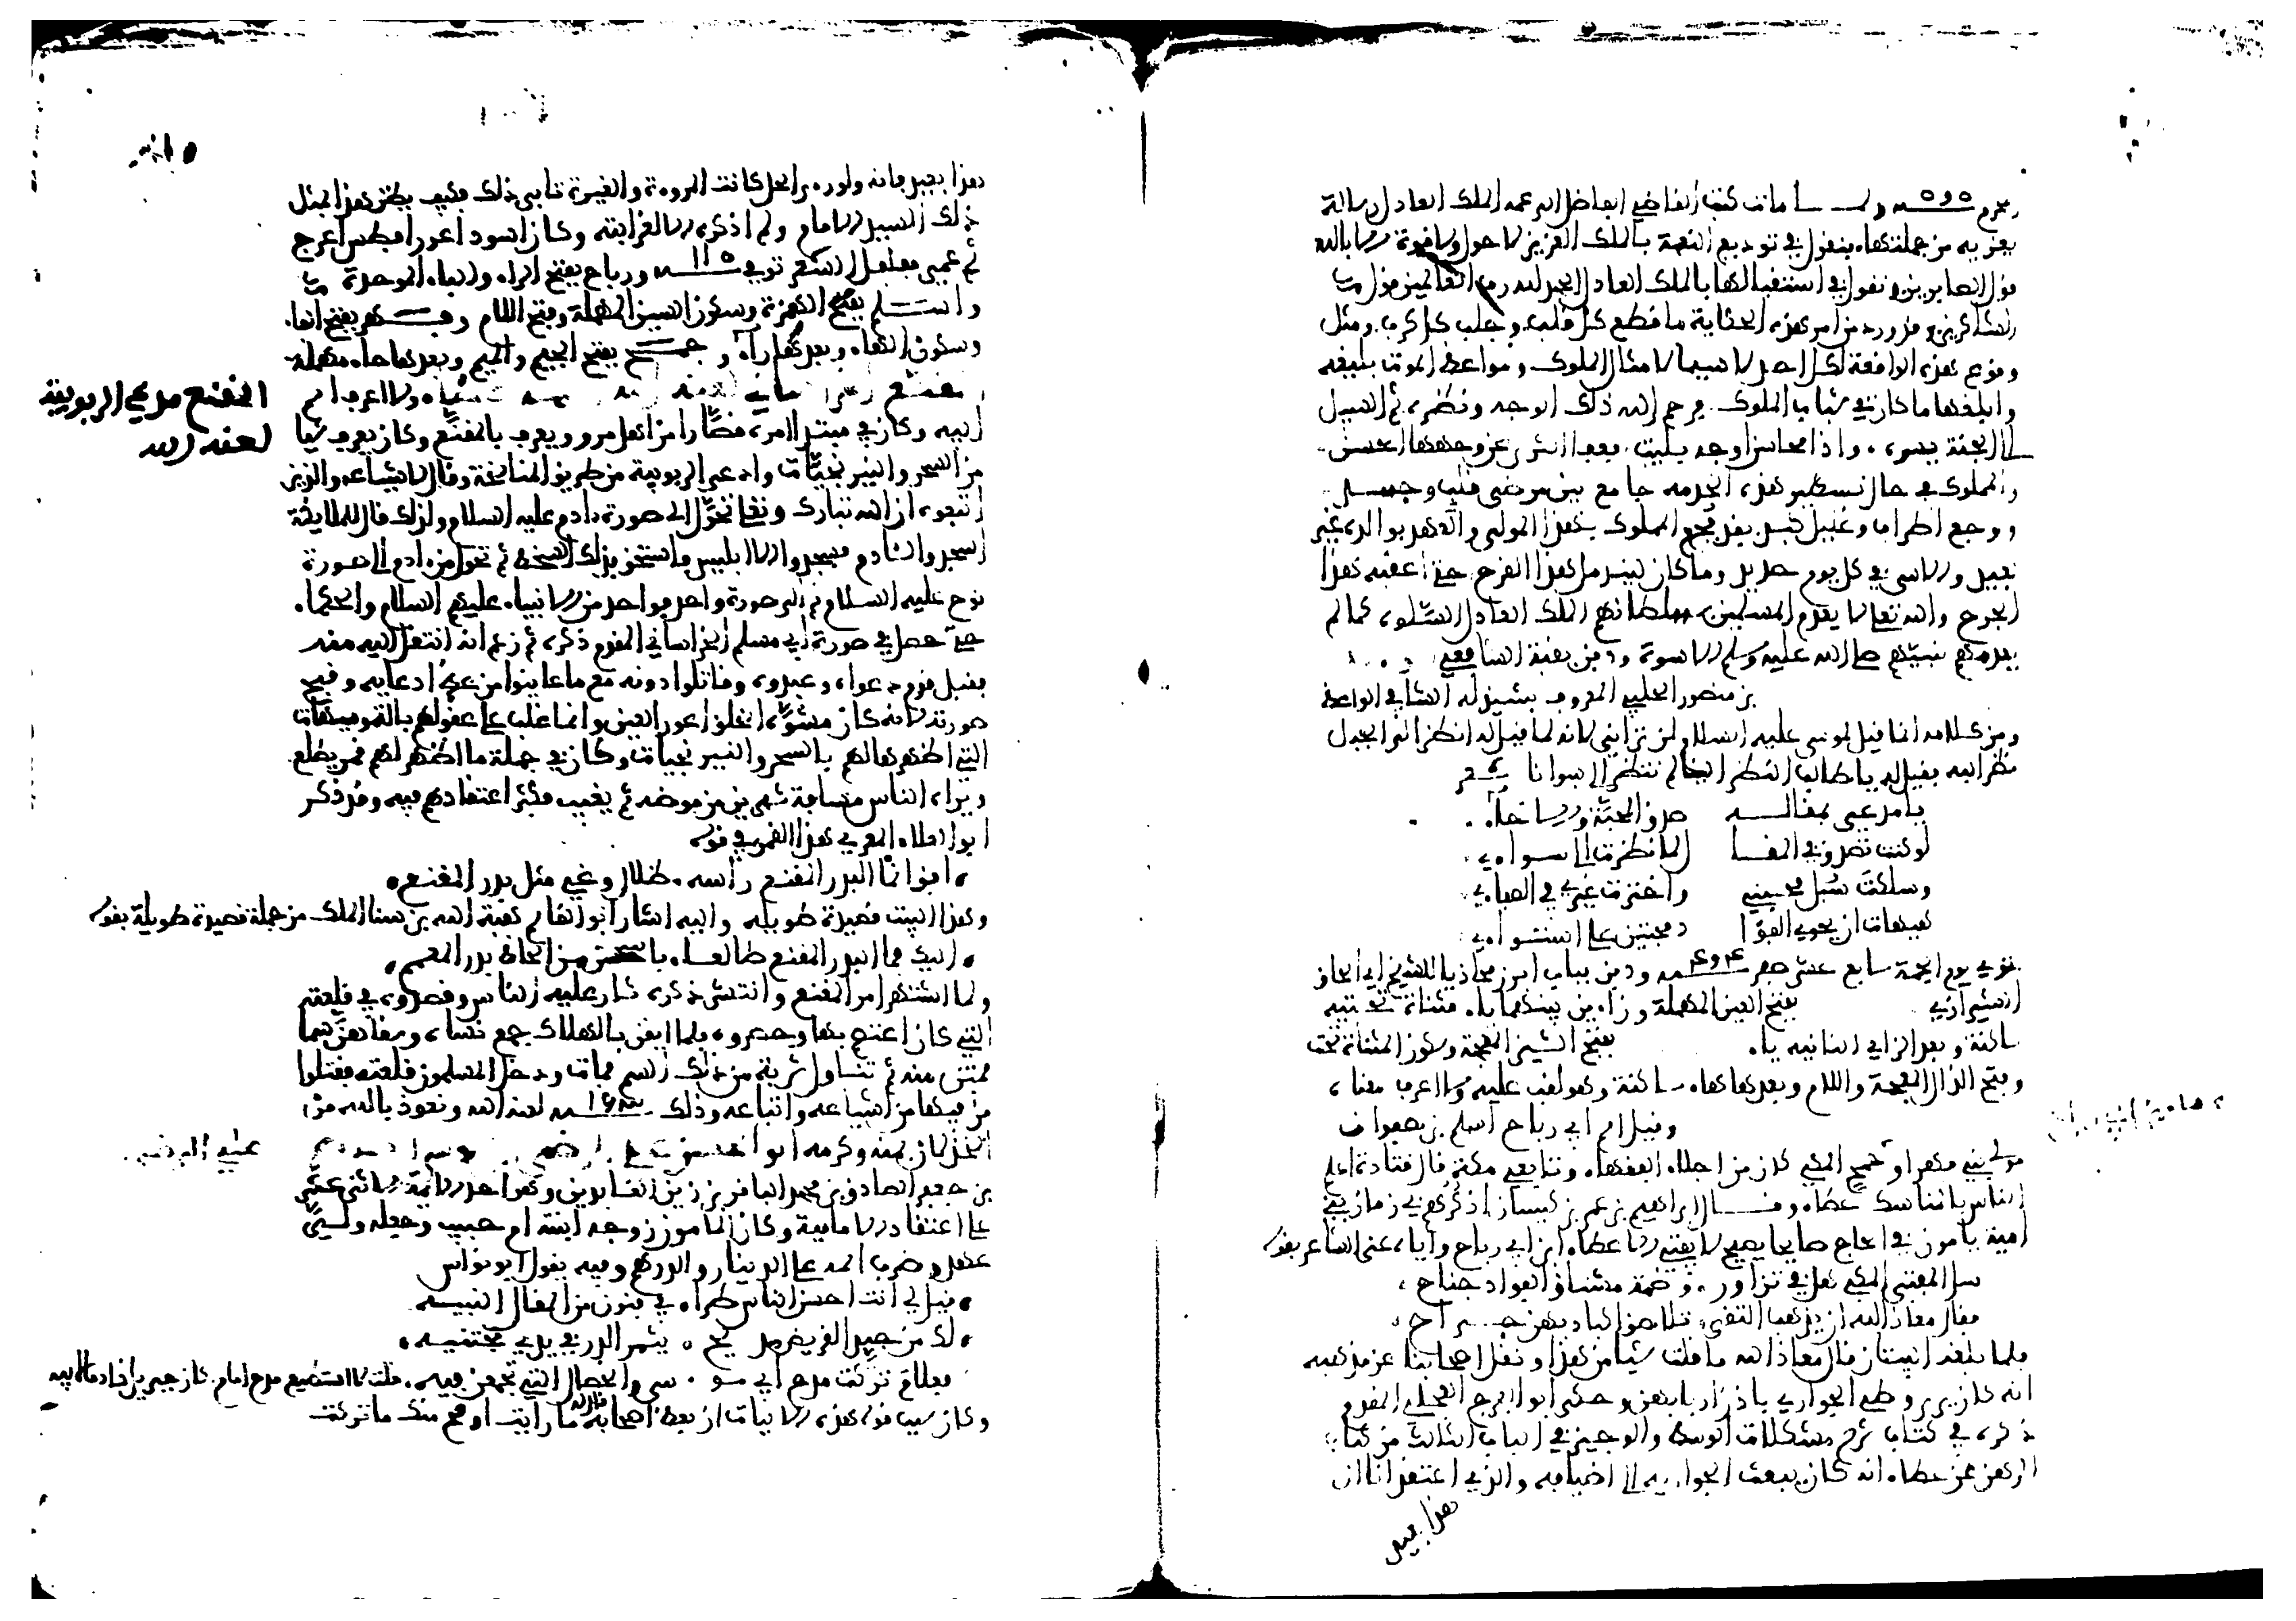 محرم ٥٩٥ ولما مات كتب القاضي الفاضل الى عمه الملك العادل رسالة
يعزيه من جملتها، فنقول في توديع النعمة بالملك العزيز لا حول ولا قوة الا بالله
قول الصابرين ونقول في استقبالها بالملك العادل الحمد لله رب العالمين قول
الشاكرين وقد ورد من امر هذه الحكاية ما قطع كل قلب وجلب كل كرب ومثل
وقوع هذه الواقعة لكل احد لا سيما لامثال الملوك ومواعظ الموت بليغة
وابلغها ما كان في شباب الملوك فرحم الله ذلك الوجه ونضره ثم السبيل
الى الجنة يسره، واذا محاسن اوجه بليت، فعفا الثرى عن وجهها الحسن
والمملوك في حال تسطير هذه الخدمة جامع بين مرضى قلب وجسد
ووجع اطراف وغليل كبد فقد فجع المملوك بهذا المولى والعهد بوالده غير
بعيد والاسى في كل يوم جديد وما كان ليندمل هذا القرح حتى اعقبه هذا
الجرح والله تعالى لا يعدم المسلمين بسلطانهم الملك العادل السلوة كما لم
يعدمهم بنبيهم صلى الله عليه وسلم الاسوة ودفن بقبة الشافعي
بن منصور الجيلي المعروف بشيذله الشافعي الواعظ
ومن كلامه انما قيل لموسى عليه السلام لن تراني لانه لما قيل له انظر الى الجبل
نظر اليه فقيل له يا طالب النظر الينا لم تنظر الى سوانا شعر
يا مدعي بمقاله صدق المحبة والاخاء
لو كنت تصدق في المقال لما نظرت الى سوائي
وسلكت سبل محبتي واخترت غيري في الصفاء
هيهات ان يحوي الفؤاد محبتين على استواء
توفي يوم الجمعة سابع عشر صفر ٤٩٤ ودفن بباب ابرز محاذيا للشيخ ابي اسحاق
الشيرازي بفتح العين المهملة وزاءين بينهما ياء مثناة تحتية
ساكنة وبعد الزاي الثانية ياء بفتح الشين المعجمة وسكون المثناة تحت
وفتح الذال المعجمة واللام وبعدها هاء ساكنة وهو لقب عليه ولا اعرف معناه
وقيل ابو ابي رباح اسلم بن صفوان
مولى بني فهر او جمح المكي كان من اجلاء الفقهاء وتابعي مكة قال قتادة اعلم
الناس بالمناسك عطاء وقال ابراهيم بن عمر بن كيسان اذكرهم في زمان بني
امية يامرون في الحاج صائحا يصيح لا يفتي الا عطاء بن ابي رباح واياه عنى الشاعر بقوله
سل المفتي المكي هل في تزاور، وضمة مشتاق الفواد جناح،
فقال معاذ الله ان يذهب التقى، تلاصق اكباد بهن جراح،
فلما بلغه البيتان قال معاذ الله ما قلت شيا من هذا ونقل اصحابنا عن مذهبه
انه كان يرى وطى الجواري باذن اربابهن وحكى ابو الفرج العجلي المقدم
ذكره في كتاب شرح مشكلات الوسيط والوجيز في الباب الثالث من كتاب
الرهن عن عطاء انه كان يبعث الجواري الى اضيافه والذي اعتقد انا ان
هذا بعيد
هذا بعيد فانه ولو راى الحل كانت المروءة والغيرة تابى ذلك فكيف يظن هذا بمثل
ذلك السيد الامام ولم اذكره الا لغرابته وكان اسود اعور افطس اعرج
ثم عمي مفلفل الشعر توفي ١١٥ ورباح بفتح الراء والباء الموحدة
واسلم بفتح الهمزة وسكون السين المهملة وفتح اللام وفهر بفتح الفاء
وسكون الهاء وبعدها راء وجمح بضم الجيم والميم وبعدها حاء مهملة
المقنع مدعي الربوبية
لعنه الله
ابيه وكان في مبتدا امره قصارا من اهل مرو ويعرف بالمقنع وكان يعرف شيا
من السحر والنيرنجيات وادعى الربوبية من طريق المناسخة وقال لاشياعه والذين
اتبعوه ان الله تبارك وتعالى تحول الى صورة ادم عليه السلام ولذلك قال للملايكة
اسجدوا لادم فسجدوا الا ابليس فاستحق بذلك السخط ثم تحول من ادم الى صورة
نوح عليه السلام ثم الى صورة واحد فواحد من الانبياء عليهم السلام والحكماء
حتى حصل في صورة ابي مسلم الخراساني المقدم ذكره ثم زعم انه انتقل اليه منه
فقبل قوم دعواه وعبدوه وقاتلوا دونه مع ما عاينوا من عظم ادعايه وقبح
صورته لانه كان مشوه الخلق اعور العين وانما غلب على عقولهم بالتمويهات
التي اظهرها لهم بالسحر والنيرنجيات وكان في جملة ما اظهر لهم قمر يطلع
ويراه الناس مسافة شهرين من موضعه ثم يغيب فكثر اعتقادهم فيه وقد ذكر
ابو العلاء المعري هذا القمر في قوله
، افق انما البدر المقنع راسه، ضلال وغي مثل بدر المقنع،
وهذا البيت قصيدة طويله واليه اشار ابو القاسم هبة الله بن سنا الملك من جملة قصيدة طويلة بقوله
، اليك فما البدر المقنع طالعا، باسحر من الحاظ بدر المعمم،
ولما اشتهر امر المقنع وانتشر ذكره ثار عليه الناس وقصدوه في قلعته
التي كان اعتصم بها وحصروه فلما ايقن بالهلاك جمع نساءه وسقاهن سما
فمتن منه ثم تناول شربة من ذلك السم فمات ودخل المسلمون قلعته فقتلوا
من فيها من اشياعه واتباعه وذلك سنة ١٦٣ لعنه الله ونعوذ بالله من
الخذلان بمنه وكرمه ابو الحسن علي الرضى
علي الرضى
بن جعفر الصادق بن محمد الباقر بن زين العابدين وهو احد الايمة الاثني عشر
على اعتقاد الامامية وكان المامون زوجه ابنته ام حبيب وجعله ولي
عهده وضرب اسمه على الدينار والدرهم وفيه يقول ابو نواس
، قيل لي انت احسن الناس طرا، في فنون من المقال النبيه
، لك من جيد القريض مديح، يثمر الدر في يدي مجتنيه،
، فعلام تركت مدح ابن موسى والخصال التي تجمعن فيه، قلت لا استطيع مدح امام، كان جبريل خادما لابيه
وكان سبب قوله هذه الابيات ان بعض اصحابه قال له ما رايت اوقح منك ما تركت